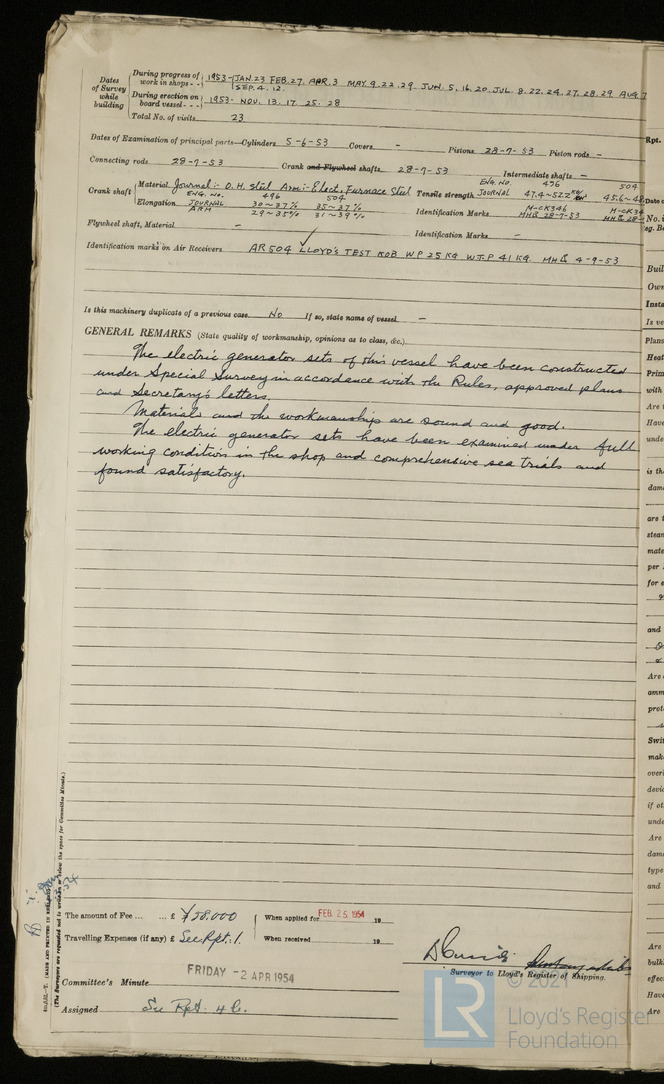 Dates of Survey while building
During progress of work in shops - - 1953- JAN.23 FEB.27. APR.3 MAY.9.22.29 JUN.5.16.20.JUL.8.22.24.27.28.29 AUG.7
SEP.4.12.
During erection on board vessel - - - 1953- NOV. 13. 17. 25. 28
Total No. of visits 23
Dates of Examination of principal parts—Cylinders 5-6-53 Covers - Pistons 28-7-53 Piston rods -
Connecting rods 28-7-53 Crank and Flywheel shafts 28-7-53 Intermediate shafts -
Crank shaft Material Journal:- O.H. Steel Arm:- Elect. Furnace Steel Tensile strength ENG. NO. 476 504
JOURNAL 47.4~52.2 45.6~48
Elongation ENG. NO. 496 504
JOURNAL 30~37% 35~37%
ARM 29~35% 31~39%
Identification Marks H-CK346 H-CK34
MHB 28-7-53 MHB 28-
Flywheel shaft, Material - Identification Marks -
Identification marks on Air Receivers AR504 LLOYD'S TEST KOB WP 25 KG W.T.P 41 KG MHB 4-9-53
Is this machinery duplicate of a previous case No If so, state name of vessel -
GENERAL REMARKS (State quality of workmanship, opinions as to class, &c.)
The electric generator sets of this vessel have been constructed
under Special Survey in accordance with the Rules, approved plans
and Secretary's letters.
Materials and the workmanship are sound and good.
The electric generator sets have been examined under full
working condition in the shop and comprehensive sea trials and
found satisfactory.
The amount of Fee ... ... £ ¥58.000 When applied for FEB 25 1954 19
Travelling Expenses (if any) £ See Rpt. 1. When received 19
Surveyor to Lloyd's Register of Shipping.
Committee's Minute FRIDAY - 2 APR 1954
Assigned See Rpt. 4b.
(The Surveyors are requested not to write on or below the space for Committee Minute.)
© 2021
LR
Lloyd's Register
Foundation
Rpt.
Date o
No. i
Buil
Own
Insta
Is ve
Plans
Heat
Prim
with
Are t
Have
unde
is th
dam
are t
stean
mate
per
for e
and
Are
amm
prot
Swit
mak
over
devic
if ot
unde
Are
dam
type
and
Are
bulk
effec
Have
Are